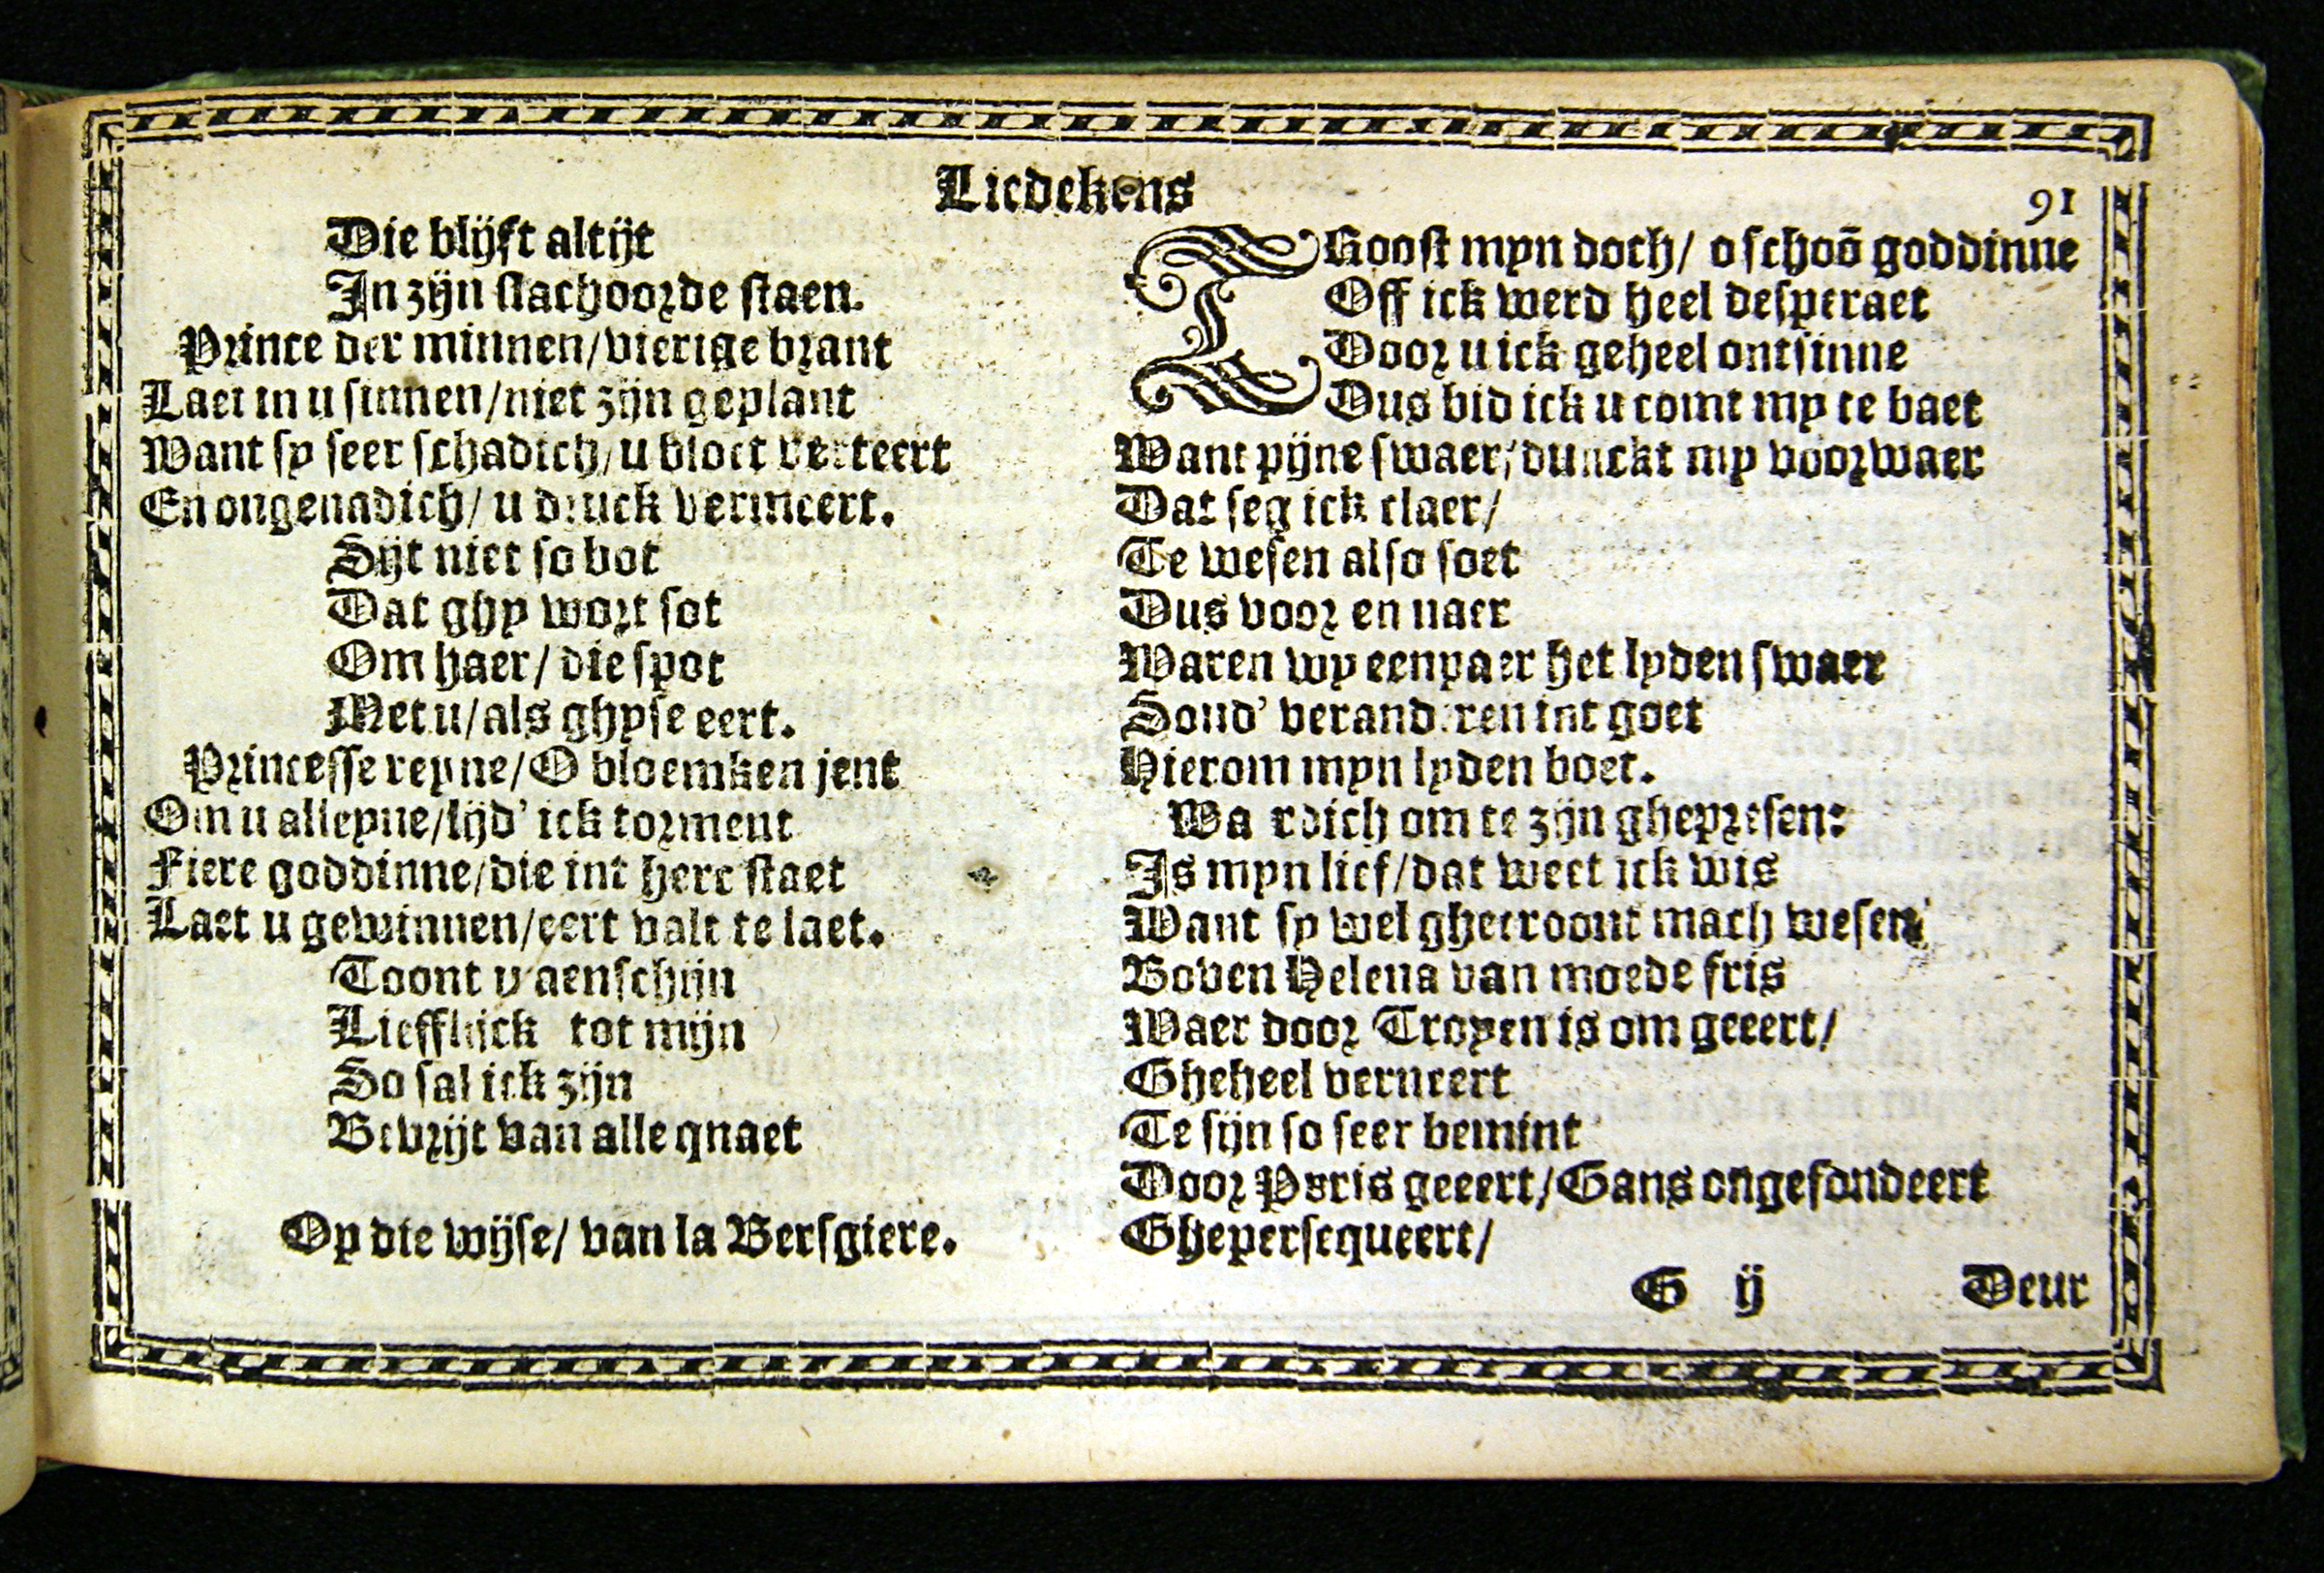 Liedekens
91
Die blijft altijt
In zijn slachoorde staen.
Prince der minnen/vierige brant
Laet in u sinnen/niet zijn geplant
Want sy seer schadich/u bloet verteert
En ongenadich/ u druck vermeert.
Sijt niet so bot
Dat ghy wort sot
Om haer/ die spot
Met u/als ghyse eert.
Princesse reyne/O bloemken jent
Om u alleyne/lijd' ick torment
Fiere goddinne/die int hert staet
Laet u gewinnen/eert valt te laet.
Toont u aenschijn
Lieffluck tot mijn
So sal ick zijn
Bevrijt van alle qnaet
Op die wijse/ van la Bersgiere.
TRoost myn doch/ o schoō goddinne
Off ick werd heel desperaet
Door u ick geheel ontsinne
Dus bid ick u comt my te baet
Want pijne swaer/dunckt my voorwaer
Dat seg ick claer/
Te wesen also soet
Dus voor en naer
Waren wy eenpaer het lyden swaer
Soud' veranderen int goet
Hierom myn lyden boet.
Waerdich om te zijn ghepresen:
Is myn lief/dat weet ick wis
Want sy wel ghecroont mach wesen
Boven Helena van moede fris
Waer door Troyen is om geeert/
Gheheel verneert
Te sijn so seer bemint
Door Paris geeert/Gans ongefondeert
Ghepersequeert/
G ij
Deur